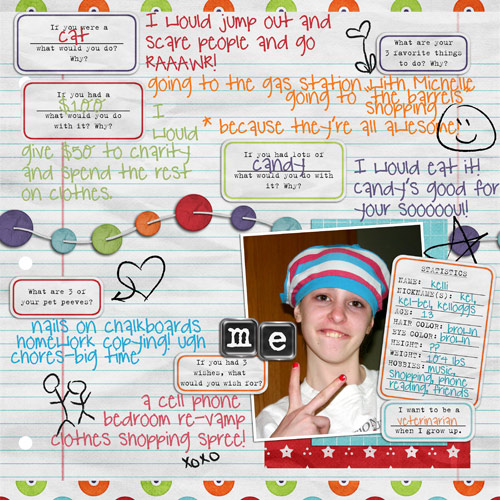 If you were a
cat
what would you do?
Why?
I would jump out and
scare people and go
RAAAWR!
What are your
3 favorite things
to do? Why?
going to the gas station with Michelle
going to the barrels
shopping
* because they're all awesome!
If you had a
$100
what would you do
with it? Why?
I
would
give $50 to charity
and spend the rest
on clothes.
If you had lots of
candy
what would you do with
it? Why?
I would eat it!
candy's good for
your Sooooou!!
What are 3 of
your pet peeves?
nails on chalkboards
homework copying! ugh
chores-big time
me
If you had 3
wishes, what
would you wish for?
a cell phone
bedroom re-vamp
clothes shopping spree!
xoxo
STATISTICS
NAME: kelli
NICKNAME(S): kel,
kel-bel, kelloggs
AGE: 13
HAIR COLOR: brown
EYE COLOR: brown
HEIGHT:
WEIGHT: 104 lbs
HOBBIES: music,
shopping, phone
reading, friends
I want to be a
veterinarian
when I grow up.